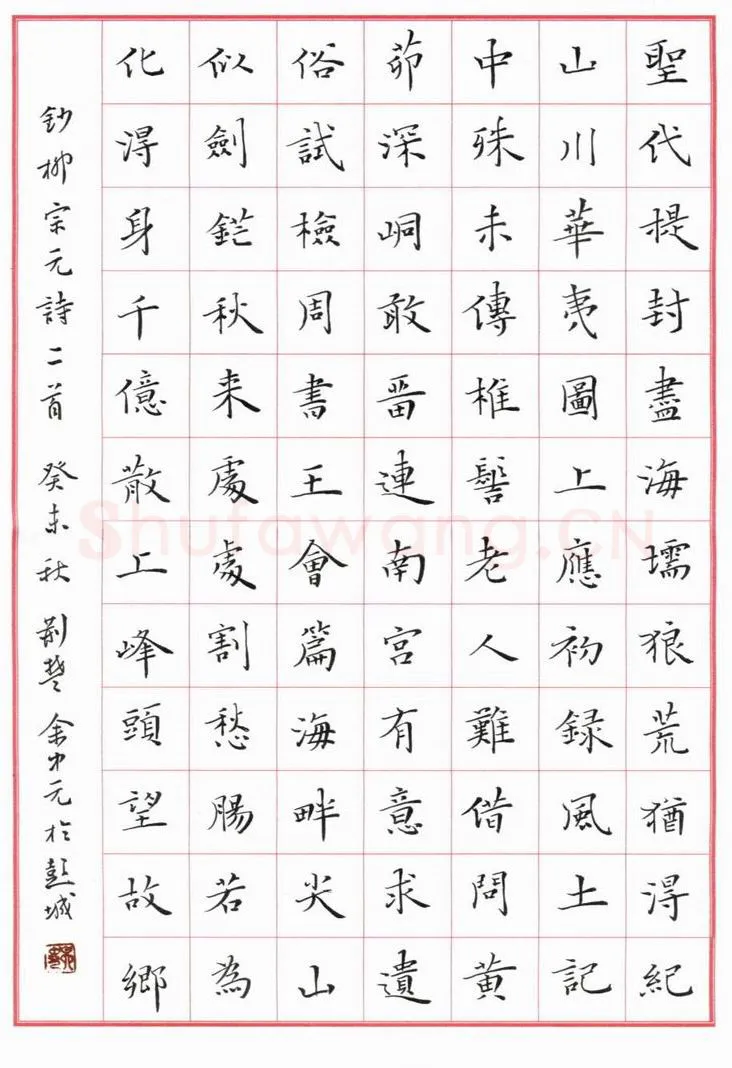 聖代提封盡海壖狼荒猶得紀
山川華夷圖上應初録風土記
中殊未傳椎髻老人難借問黃
茆深峒敢畱連南宮有意求遺
俗試檢周書王會篇海畔尖山
似劍鋩秋来處處割愁腸若為
化得身千億散上峰頭望故鄉
鈔柳宗元詩二首 癸未秋 荊楚 余中元於彭城
Shufawang.CN